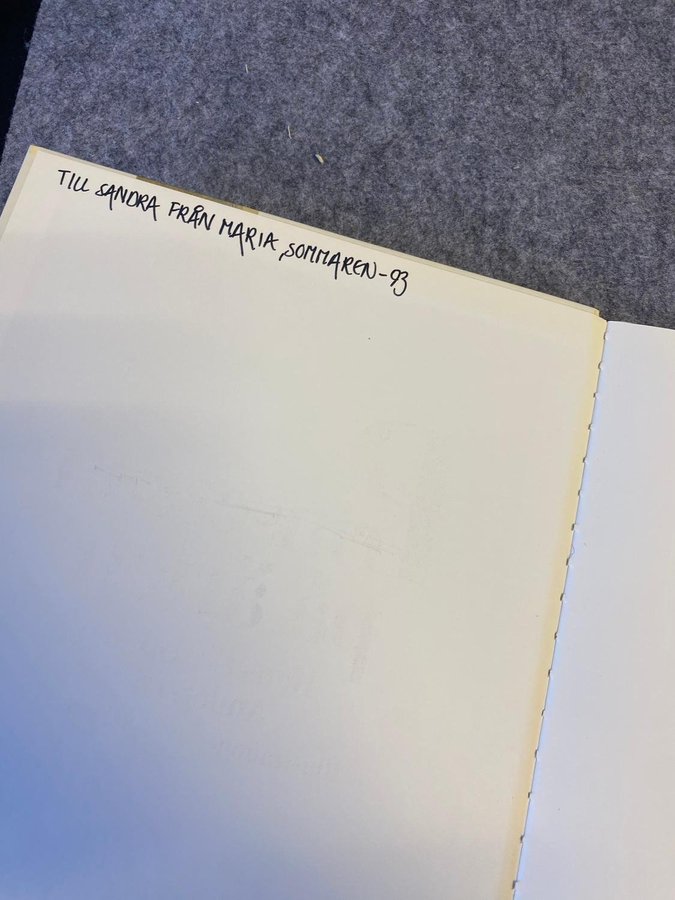 TILL SANDRA FRÅN MARIA, SOMMAREN-93